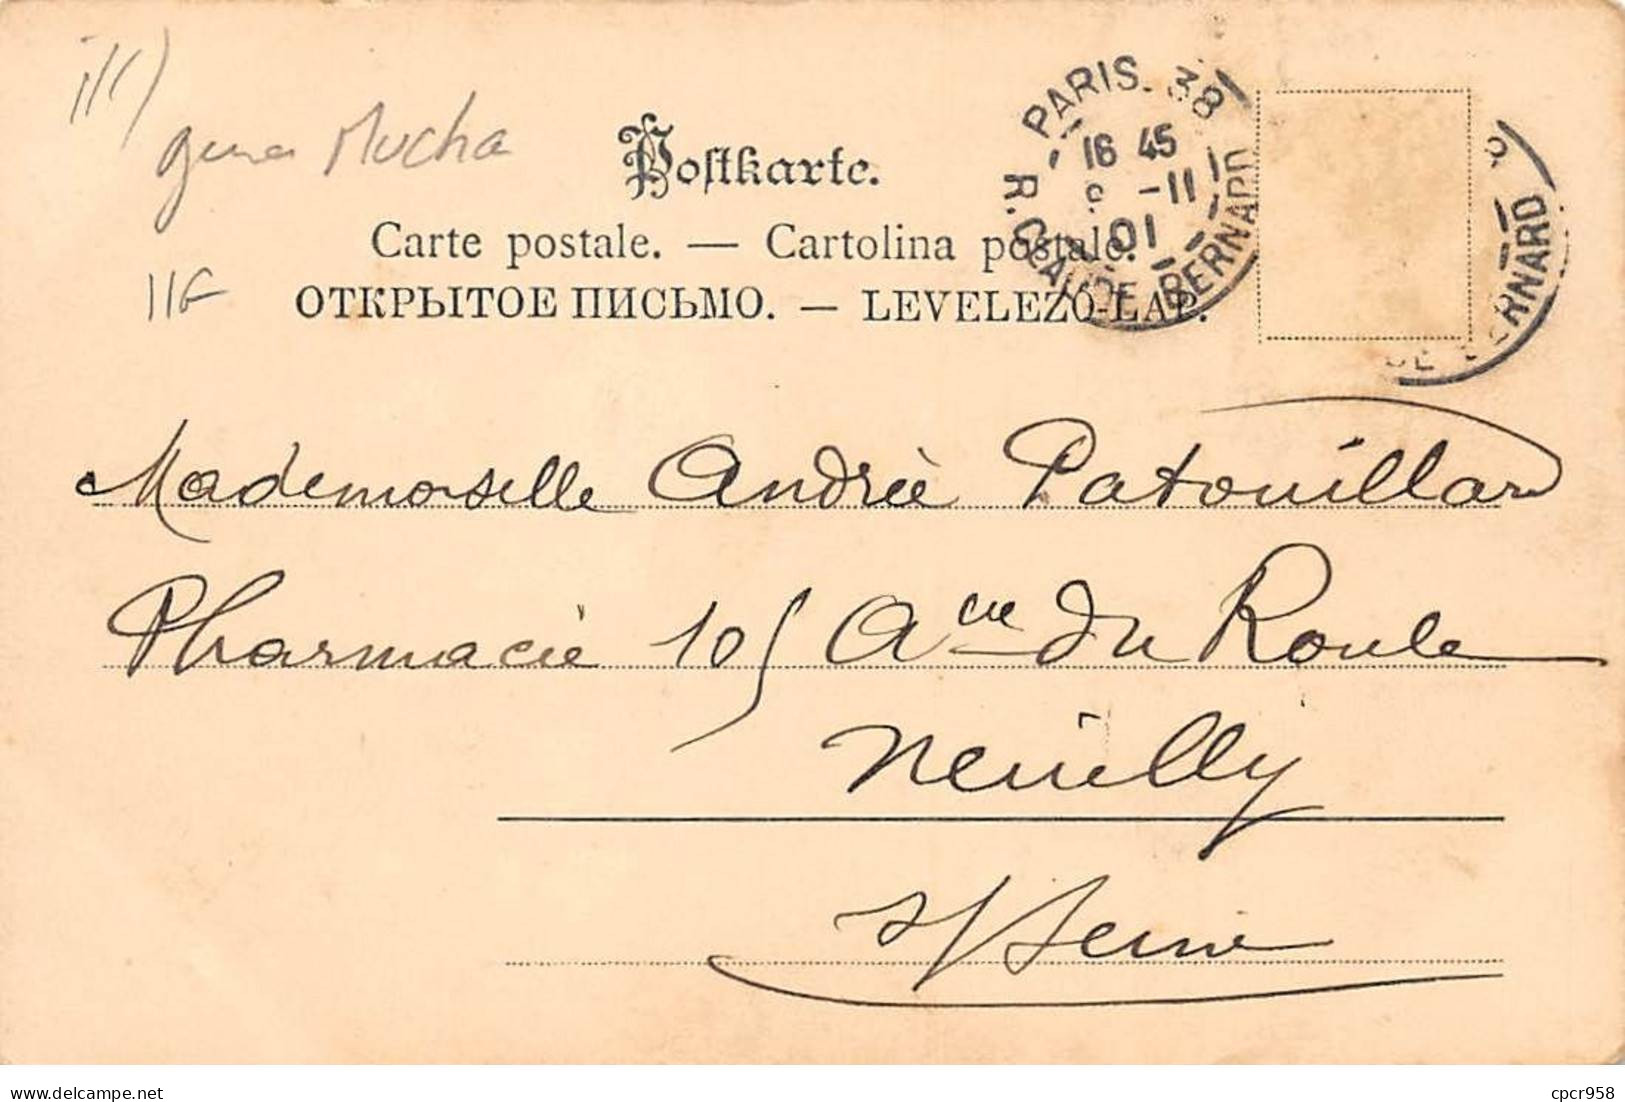 ill)
genre Mucha
Postkarte.
Carte postale. — Cartolina postale.
11G
ОТКРЫТОЕ ПИСЬМО. — LEVELEZÖ-LAP.
PARIS. 38
R. CLAUDE BERNARD
16 45
-11
01
RNARD
Mademoiselle Andrée Patouillard
Pharmacie 105 Ave du Roule
Neuilly
s/Seine
delcampe.net
cpcr958